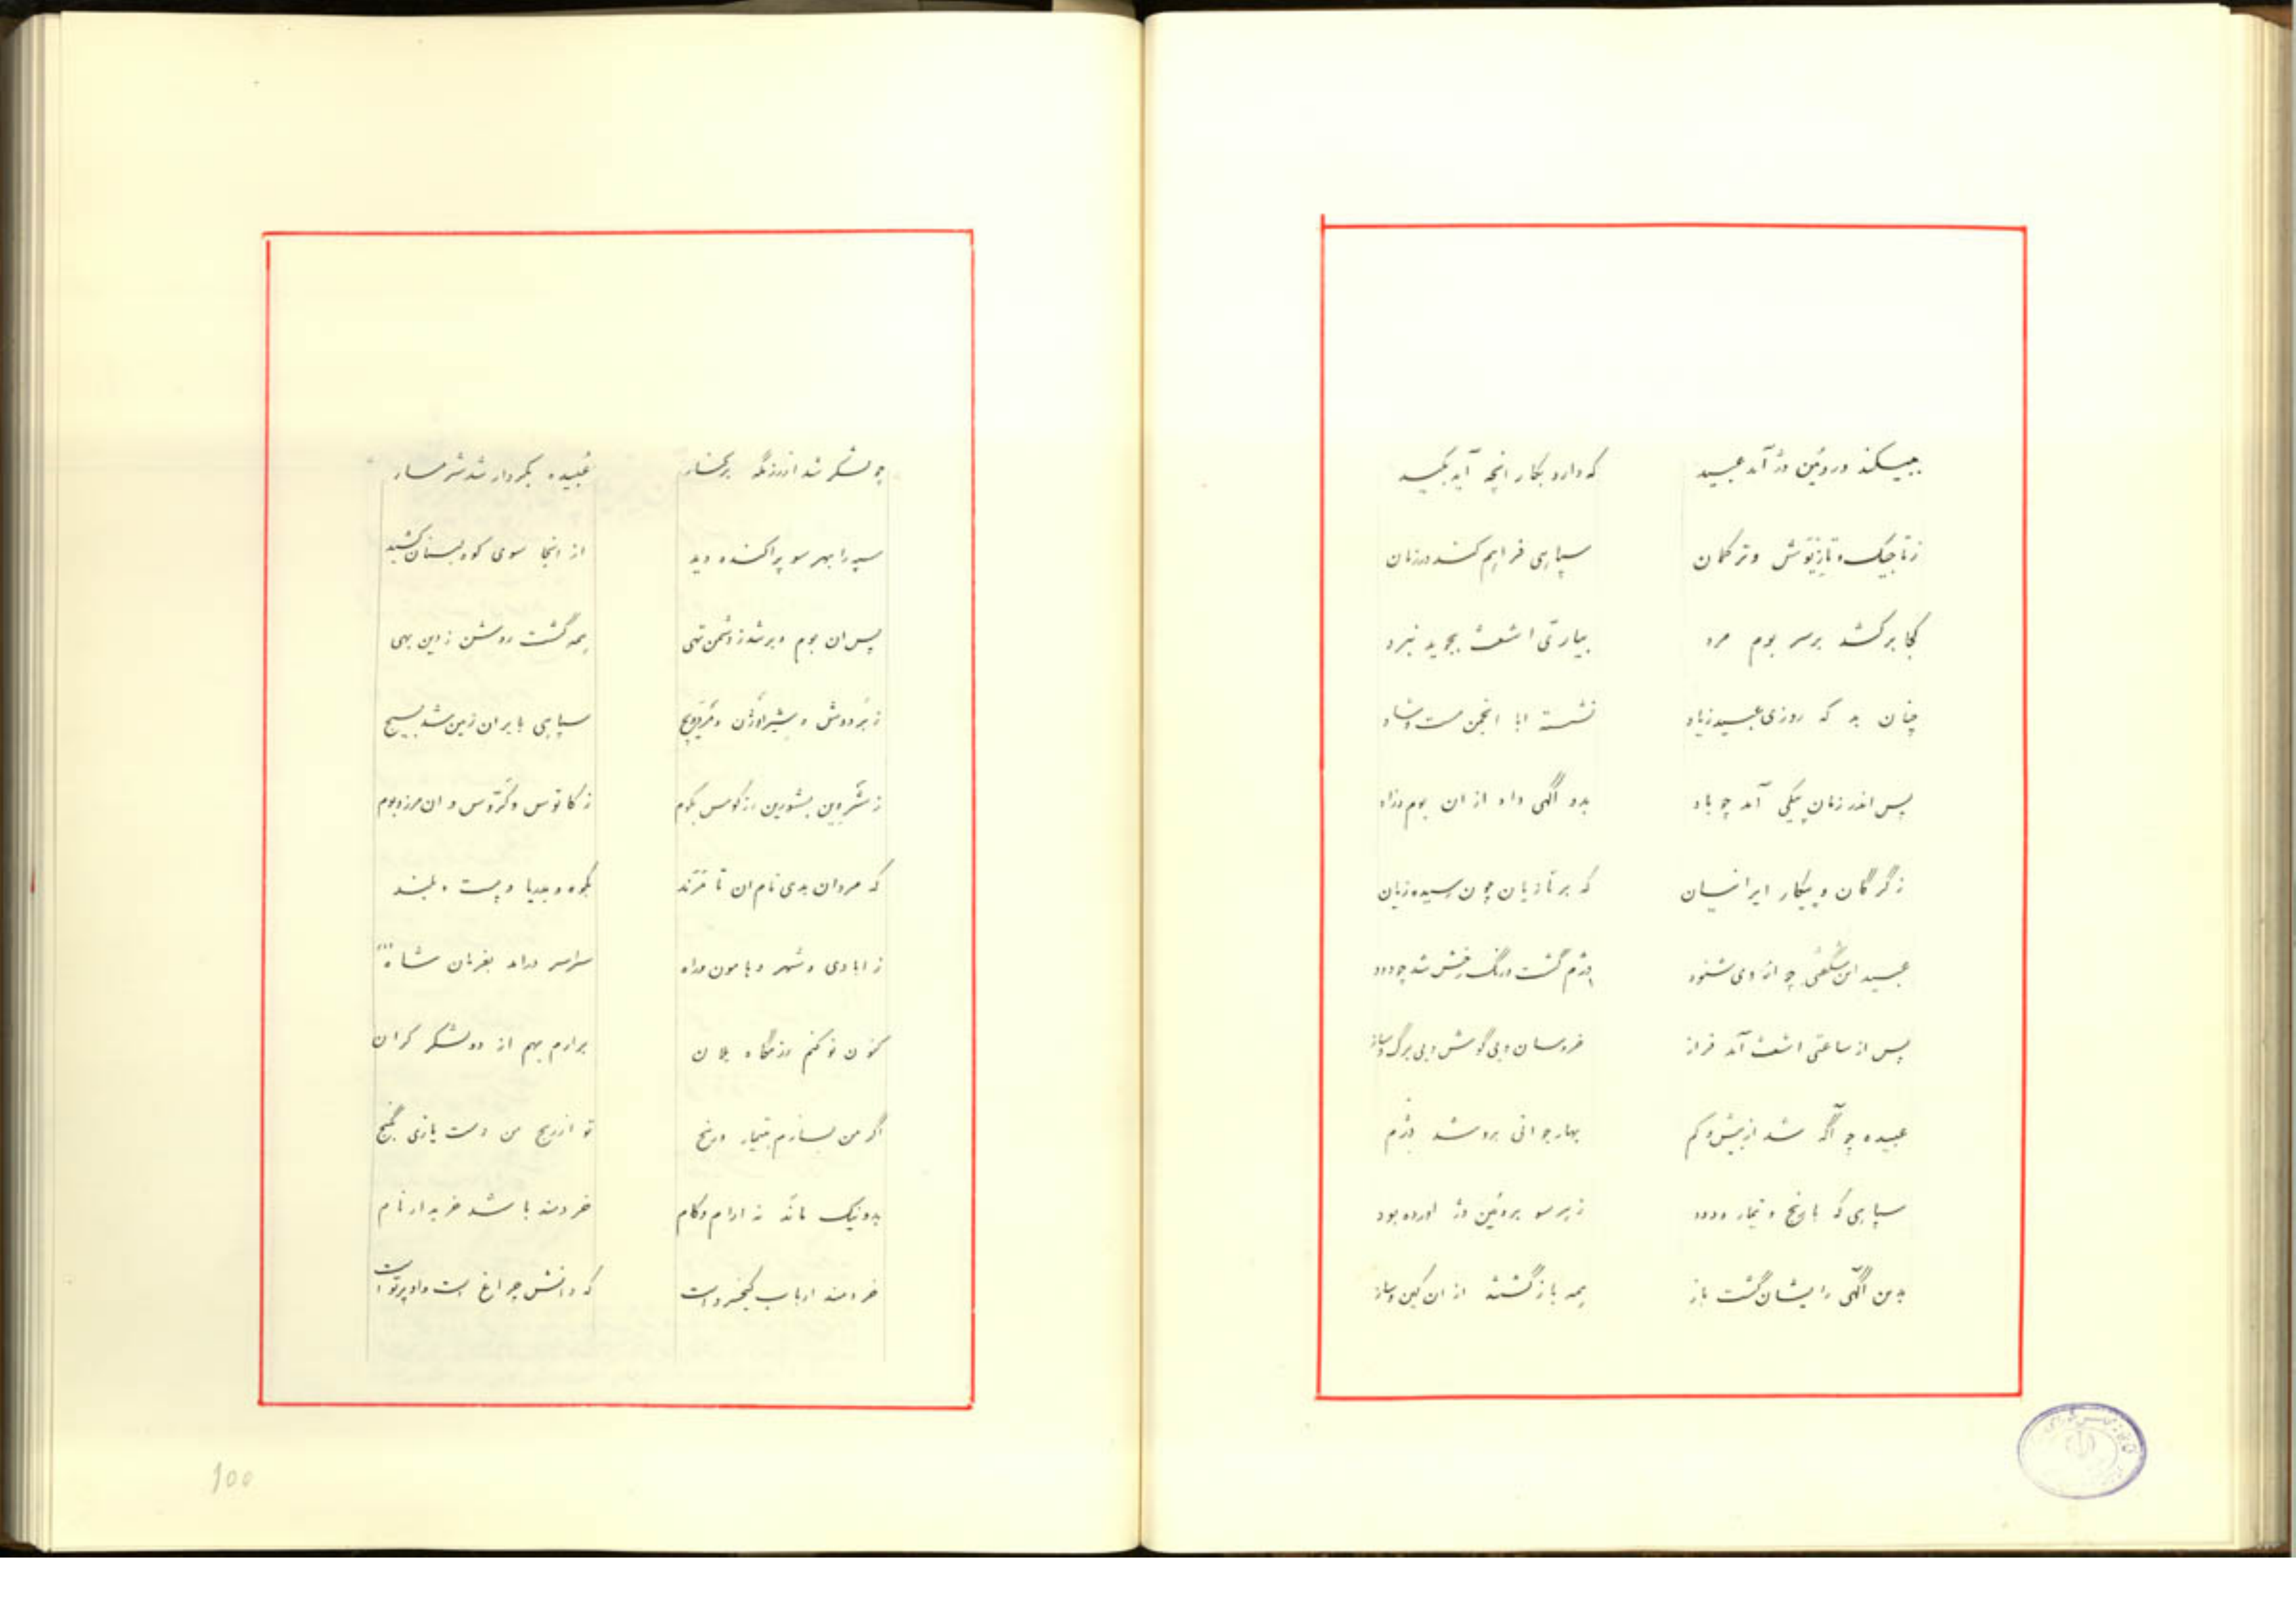 که دارد بکار آنچه آید بکید
زتاجیک و تازی‌وش و ترکمان سپاهی فراهم کند در زمان
کجا برکشد برسر بوم مرد بیاری اشعث بجوید نبرد
چنان بد که روزی عبید زیاد نشسته ابا انجمن مست و شاد
پس اندر زمان پیکی آمد چو باد بدو آگهی داد از ان بوم
ز گرگان و پیکار ایرانیان که بر تازیان چون رسیده زیان
عبید این شگفتی چو از وی شنود دژم گشت و رنگ رخش شد چو دود
پس از ساعتی اشعث آمد فراز خروسان و بی گوش و بی برگ و ساز
عبیده چو آگه شد از بیش و کم بهار جوانی بروشد دژم
سپاهی که با رنج و تیمار زهر سو بروئین دژ اورده بود
بدین آگهی رایشان گشت باز همه بازگشتند از ان کین و ساز
چو لشکر شد از رزمگه برکنار عبیده بکردار شد شرمسار
سپه را بهر سو پراکنده دید از اینجا سوی کوهستان کشید
پس ان بوم و بر شد ز دشمن تهی همه گشت روشن ز دین بهی
سپاهی بایران زمین شد بسیج
ز کاتوس و کروس و ان مرز و بوم
که مردان بدی نام ان بکوه و بدریا و پست و بلند
ز ابادی و شهر و هامون و راه سراسر براند بفرمان شاه
کنون نو کنم رزمگاه یلان برارم بهم از دو لشکر کران
اگر من بسازم بتیمار و رنج تو از رنج من دست یازی بگنج
بد و نیک ماند نه ارام و کام خردمند باشد خریدار نام
خردمند ارباب کیخسرو است که دانش چراغ است و او پرتو است
100